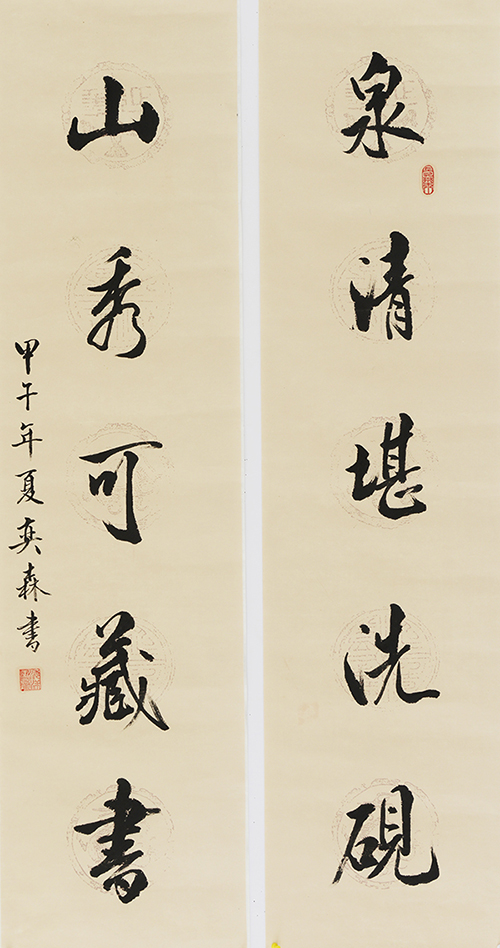 泉清堪洗硯
山秀可藏書
甲午年夏奕森書